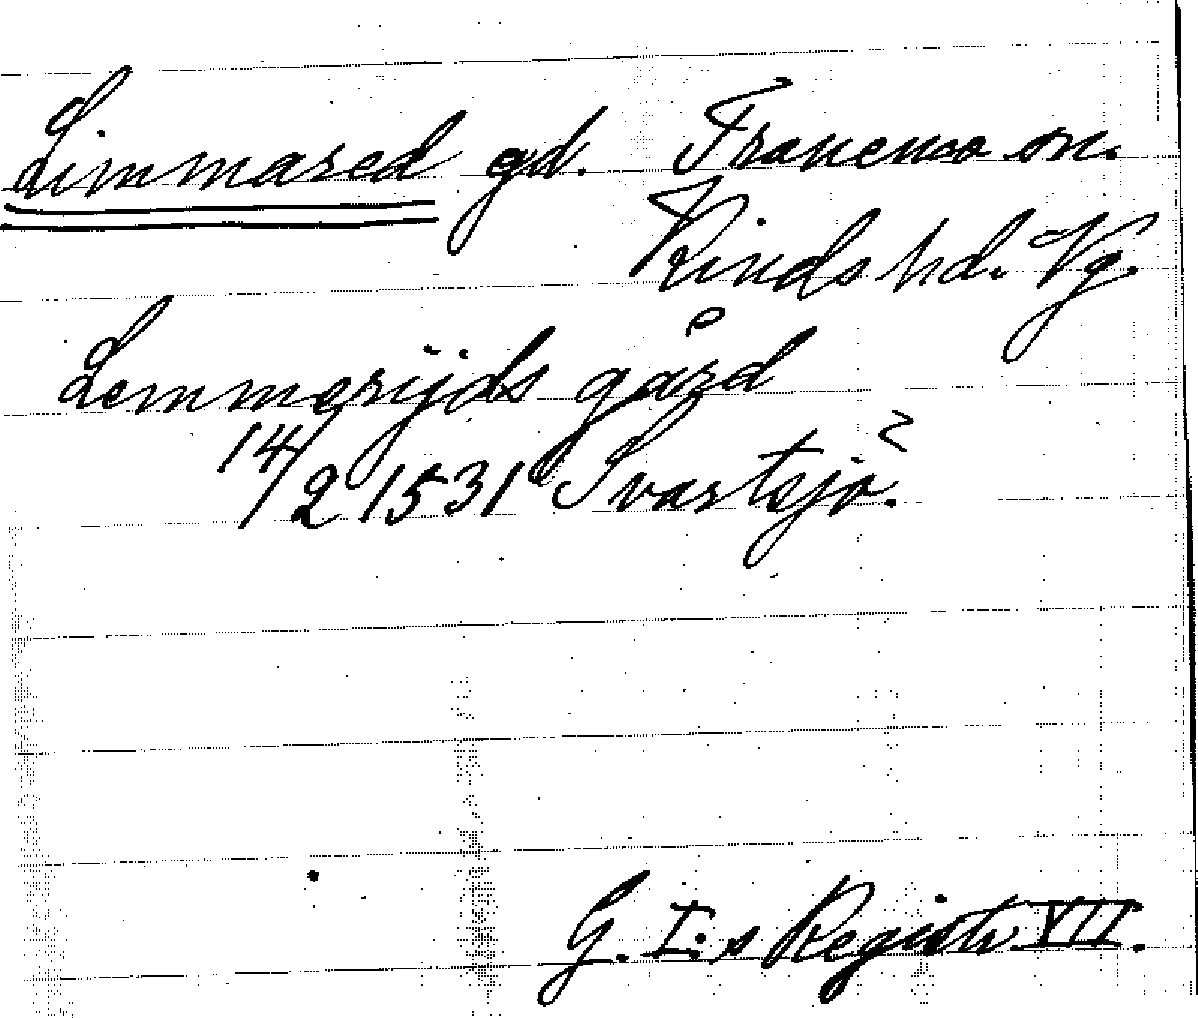 Limmared gd. Tranemo sn.
Kinds hd. Vg.
Lemmerijds gård
14/2 1531 Svartsjö?
G. I:s Registr VII.